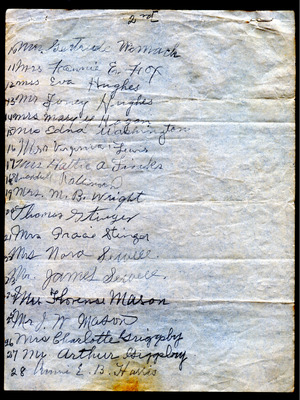 2nd
10 Mrs. Gertrude Womack
11 Mrs Fannie E. Fox
12 Mrs Eva Hughes
13 Mr Toney Hughes
14 Mrs Mary Hogan
15 Mrs Edna Washington
16 Mrs Virginia Lewis
17 Mrs Hattie A Tinks
18
19 Mrs. M. B. Wright
20 Thomas Stinger
21 Mrs Gracie Stinger
22 Mrs Nora Sewell.
23 Mr. James Sewell.
24 Mrs Florence Mason
25 Mr J. W Mason
26 Mrs Charlotte Griggsby
27 Mr Arthur Griggsby
28 Annie E. B. Harris